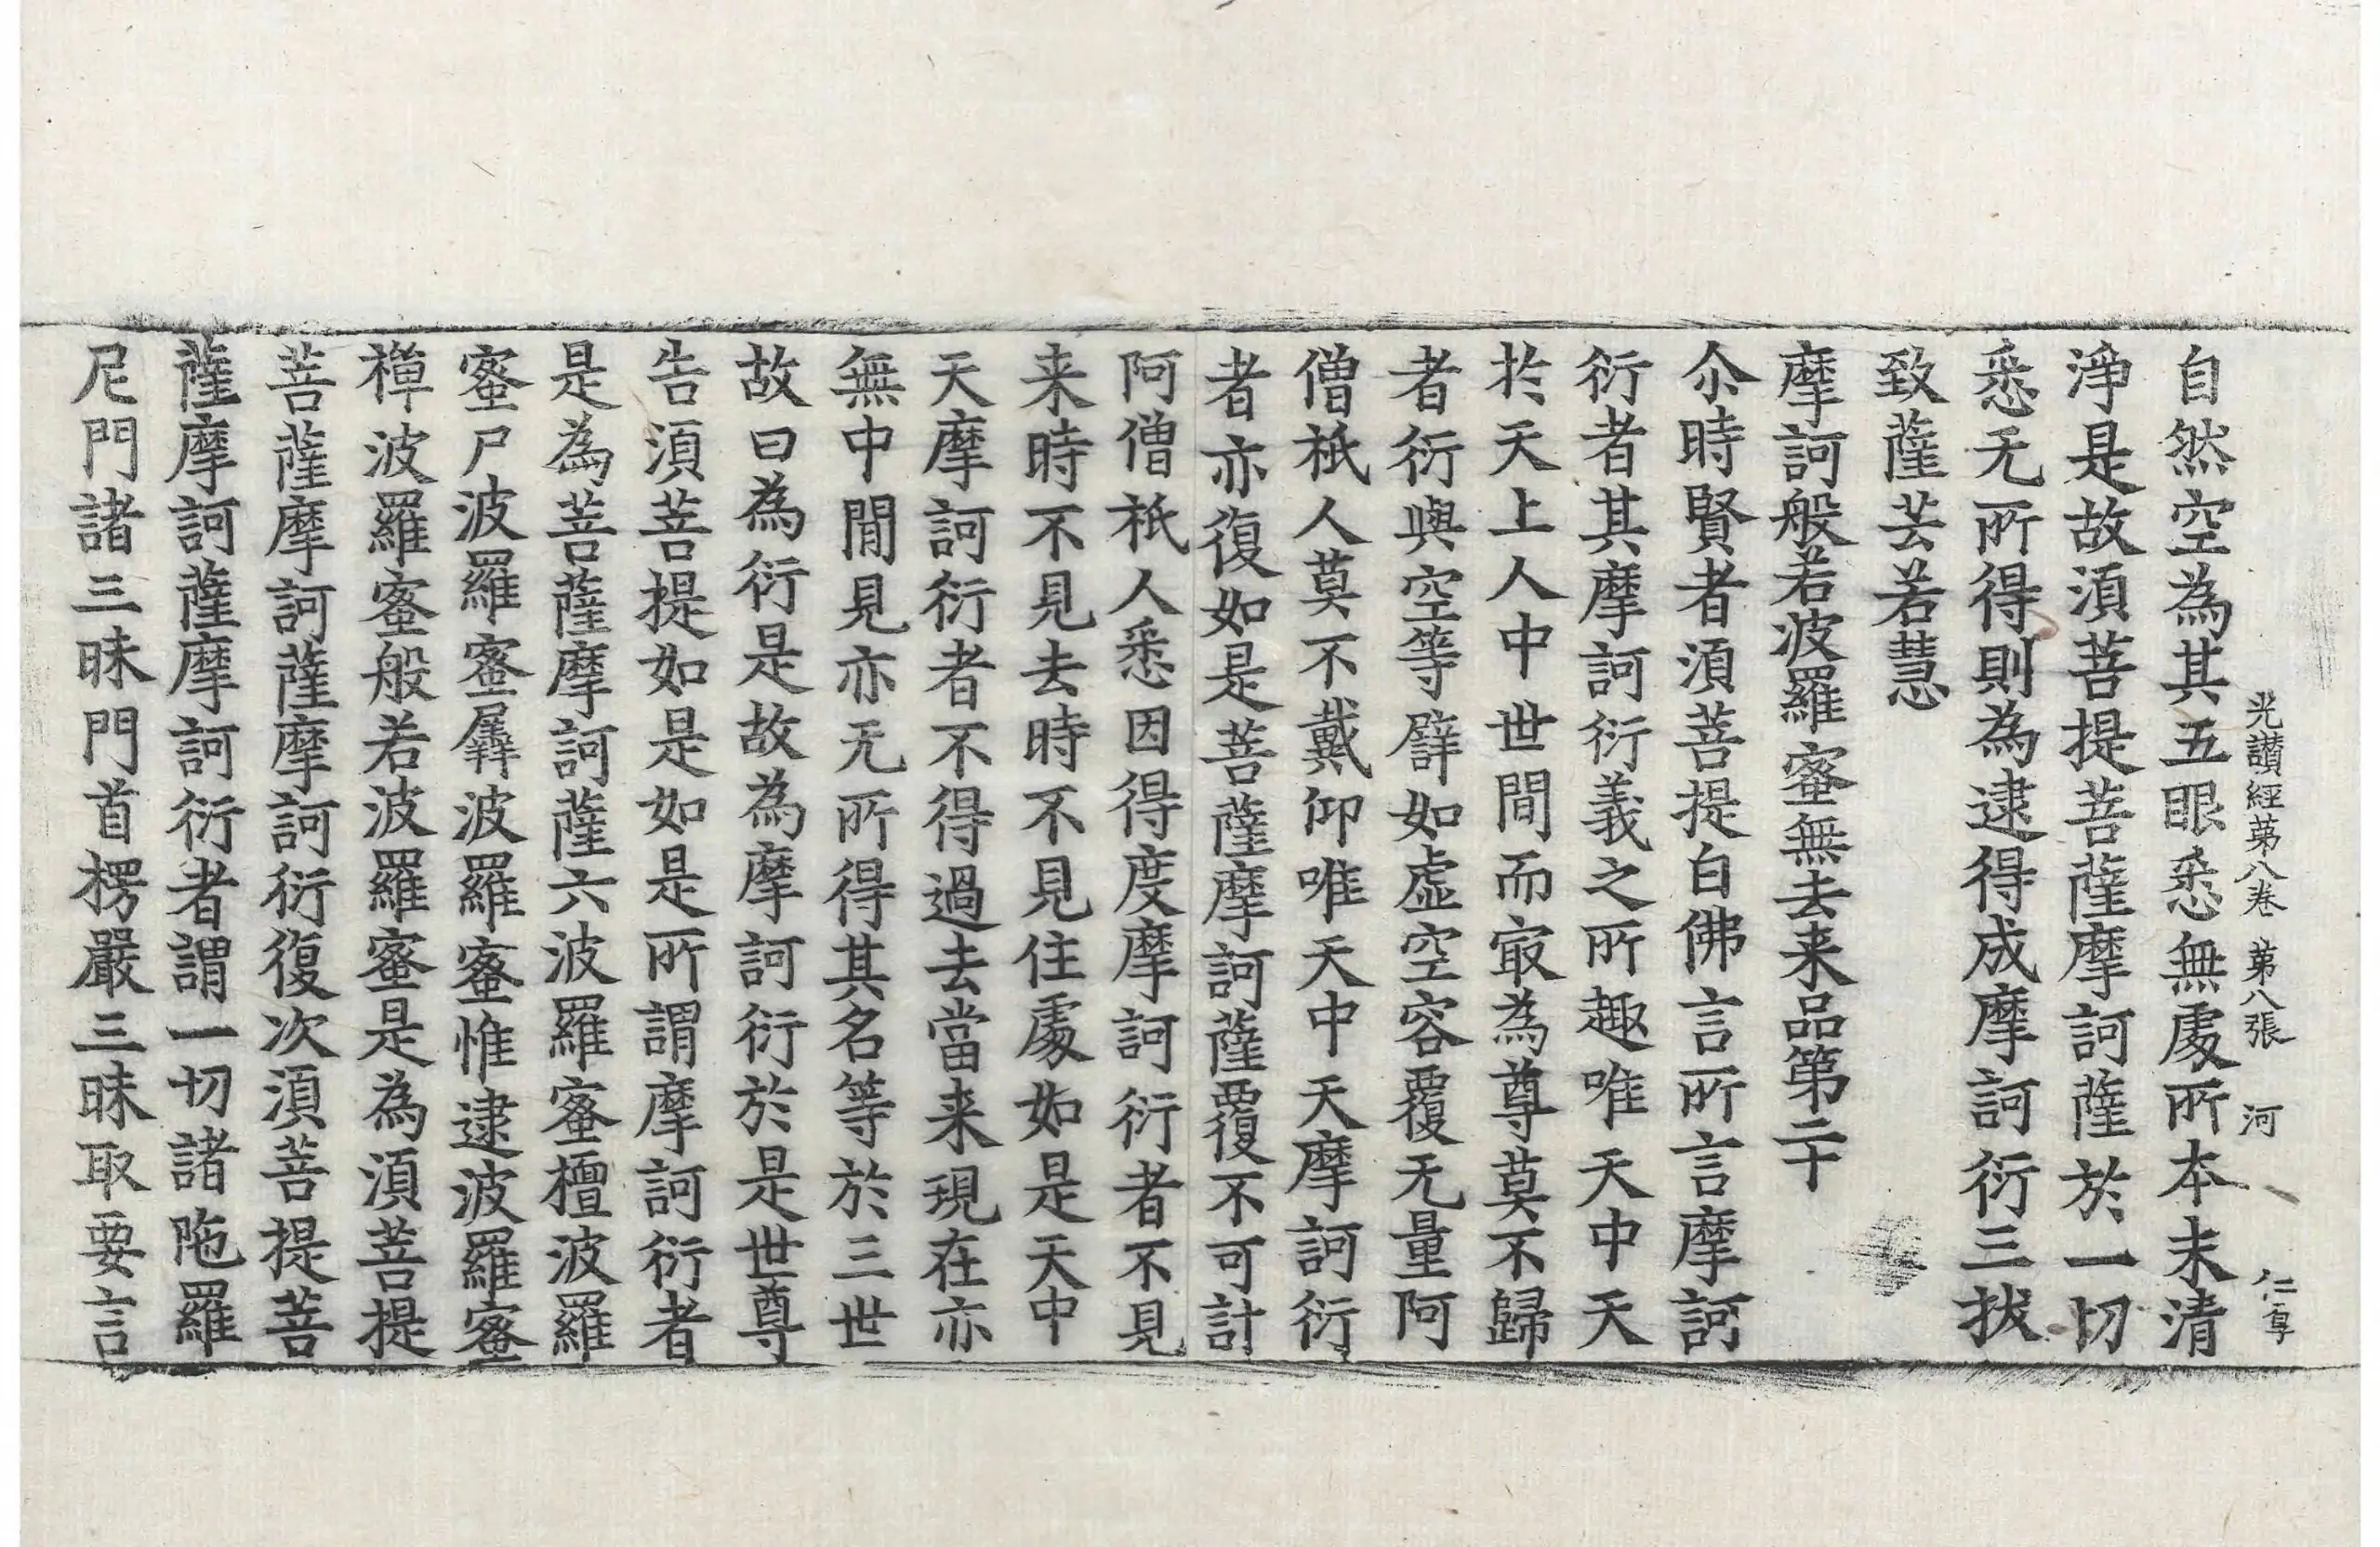 光讃經苐八卷 苐八張 河 仁𡦂
自然空為其五眼悉無處所本末清
淨是故湏菩提菩薩摩訶薩於一切
悉无所得則為逮得成摩訶衍三拔
致薩芸若慧
摩訶般若波羅蜜無去来品第二十
尒時賢者湏菩提白佛言所言摩訶
衍者其摩訶衍義之所趣唯天中天
扵天上人中世間而㝡為尊莫不歸
者衍與空等譬如虛空容覆无量阿
僧祇人莫不戴仰唯天中天摩訶衍
者亦復如是菩薩摩訶薩覆不可計
阿僧祇人悉因得度摩訶衍者不見
来時不見去時不見住處如是天中
天摩訶衍者不得過去當来現在亦
無中間見亦无所得其名等於三世
故曰為衍是故為摩訶衍於是世尊
告湏菩提如是如是所謂摩訶衍者
是為菩薩摩訶薩六波羅蜜檀波羅
蜜尸波羅蜜羼波羅蜜惟逮波羅蜜
禪波羅蜜般若波羅蜜是為湏菩提
菩薩摩訶薩摩訶衍復次湏菩提菩
薩摩訶薩摩訶衍者謂一切諸陁羅
尼門諸三昧門首楞嚴三昧取要言